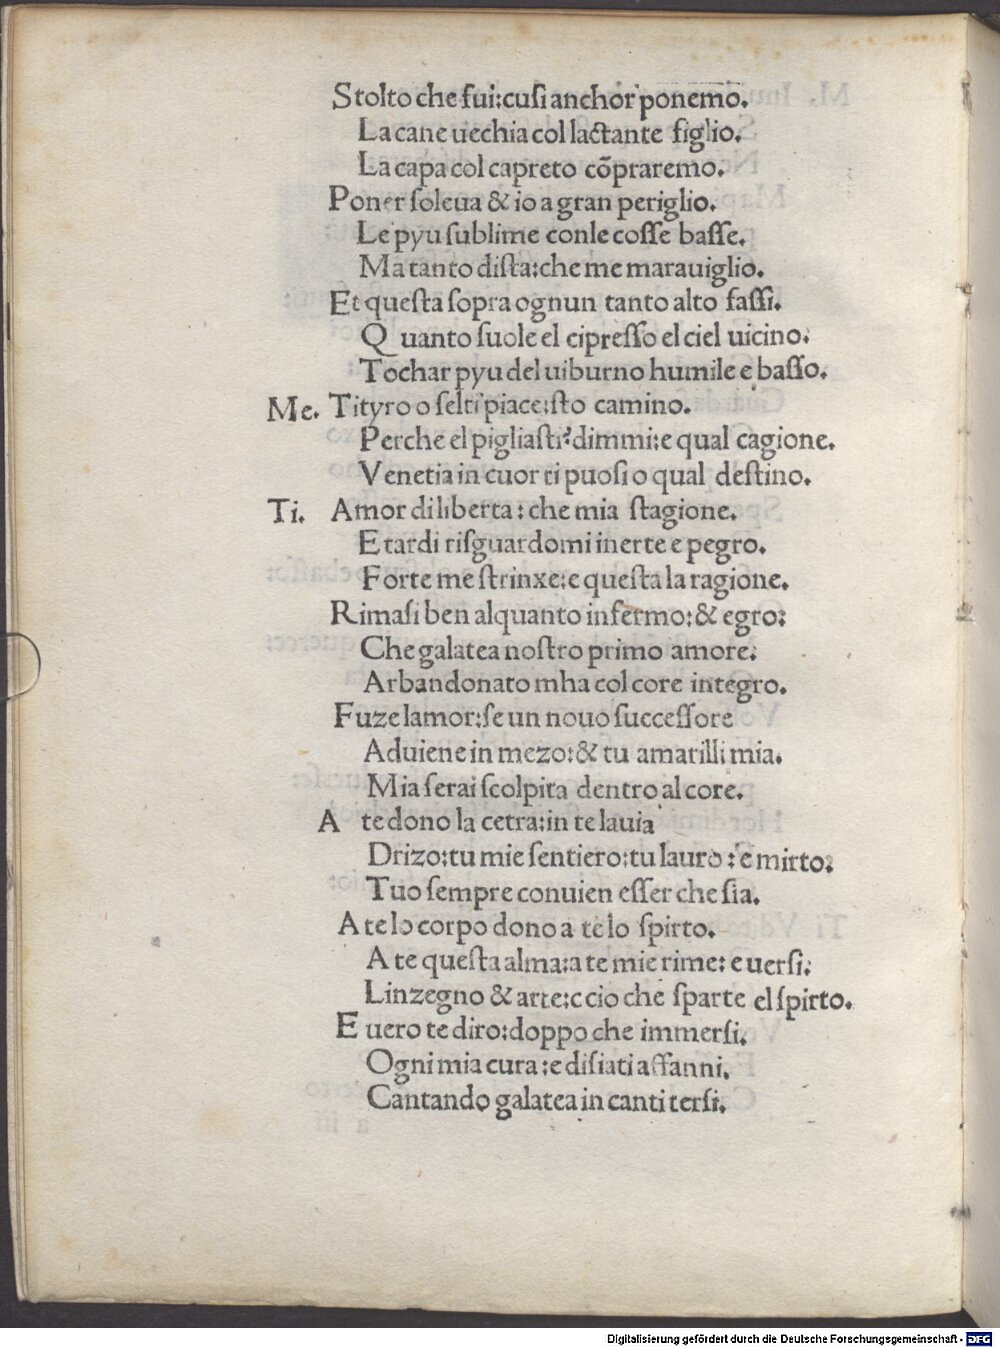 Stolto che fui:cusi anchor ponemo.
La cane uechia col lactante figlio.
La capa col capreto cõpraremo.
Poner soleua & io a gran periglio.
Le pyu sublime con le cosse basse.
Ma tanto dista:che me marauiglio.
Et questa sopra ognun tanto alto fassi.
Quanto suole el cipresso el ciel uicino.
Tochar pyu del uiburno humile e basso.
Me. Tityro o selti piace:sto camino.
Perche el pigliasti? dimmi:e qual cagione.
Venetia in cuor ti puosi o qual destino.
Ti. Amor di liberta: che mia stagione.
E tardi risguardomi inerte e pegro.
Forte me strinxe:e questa la ragione.
Rimasi ben alquanto infermo:& egro:
Che galatea nostro primo amore.
Arbandonato mha col core integro.
Fuze lamor:se un nouo successore
Aduiene in mezo:& tu amarilli mia.
Mia serai scolpita dentro al core.
A te dono la cetra:in te lauia
Drizo:tu mie sentiero:tu lauro : e mirto.
Tuo sempre conuien esser che sia.
A te lo corpo dono a te lo spirto.
A te questa alma:a te mie rime: e uersi.
Linzegno & arte:c cio che sparte el spirto.
E uero te diro:doppo che immersi.
Ogni mia cura:e disiati affanni.
Cantando galatea in canti tersi.
Digitalisierung gefördert durch die Deutsche Forschungsgemeinschaft - DFG